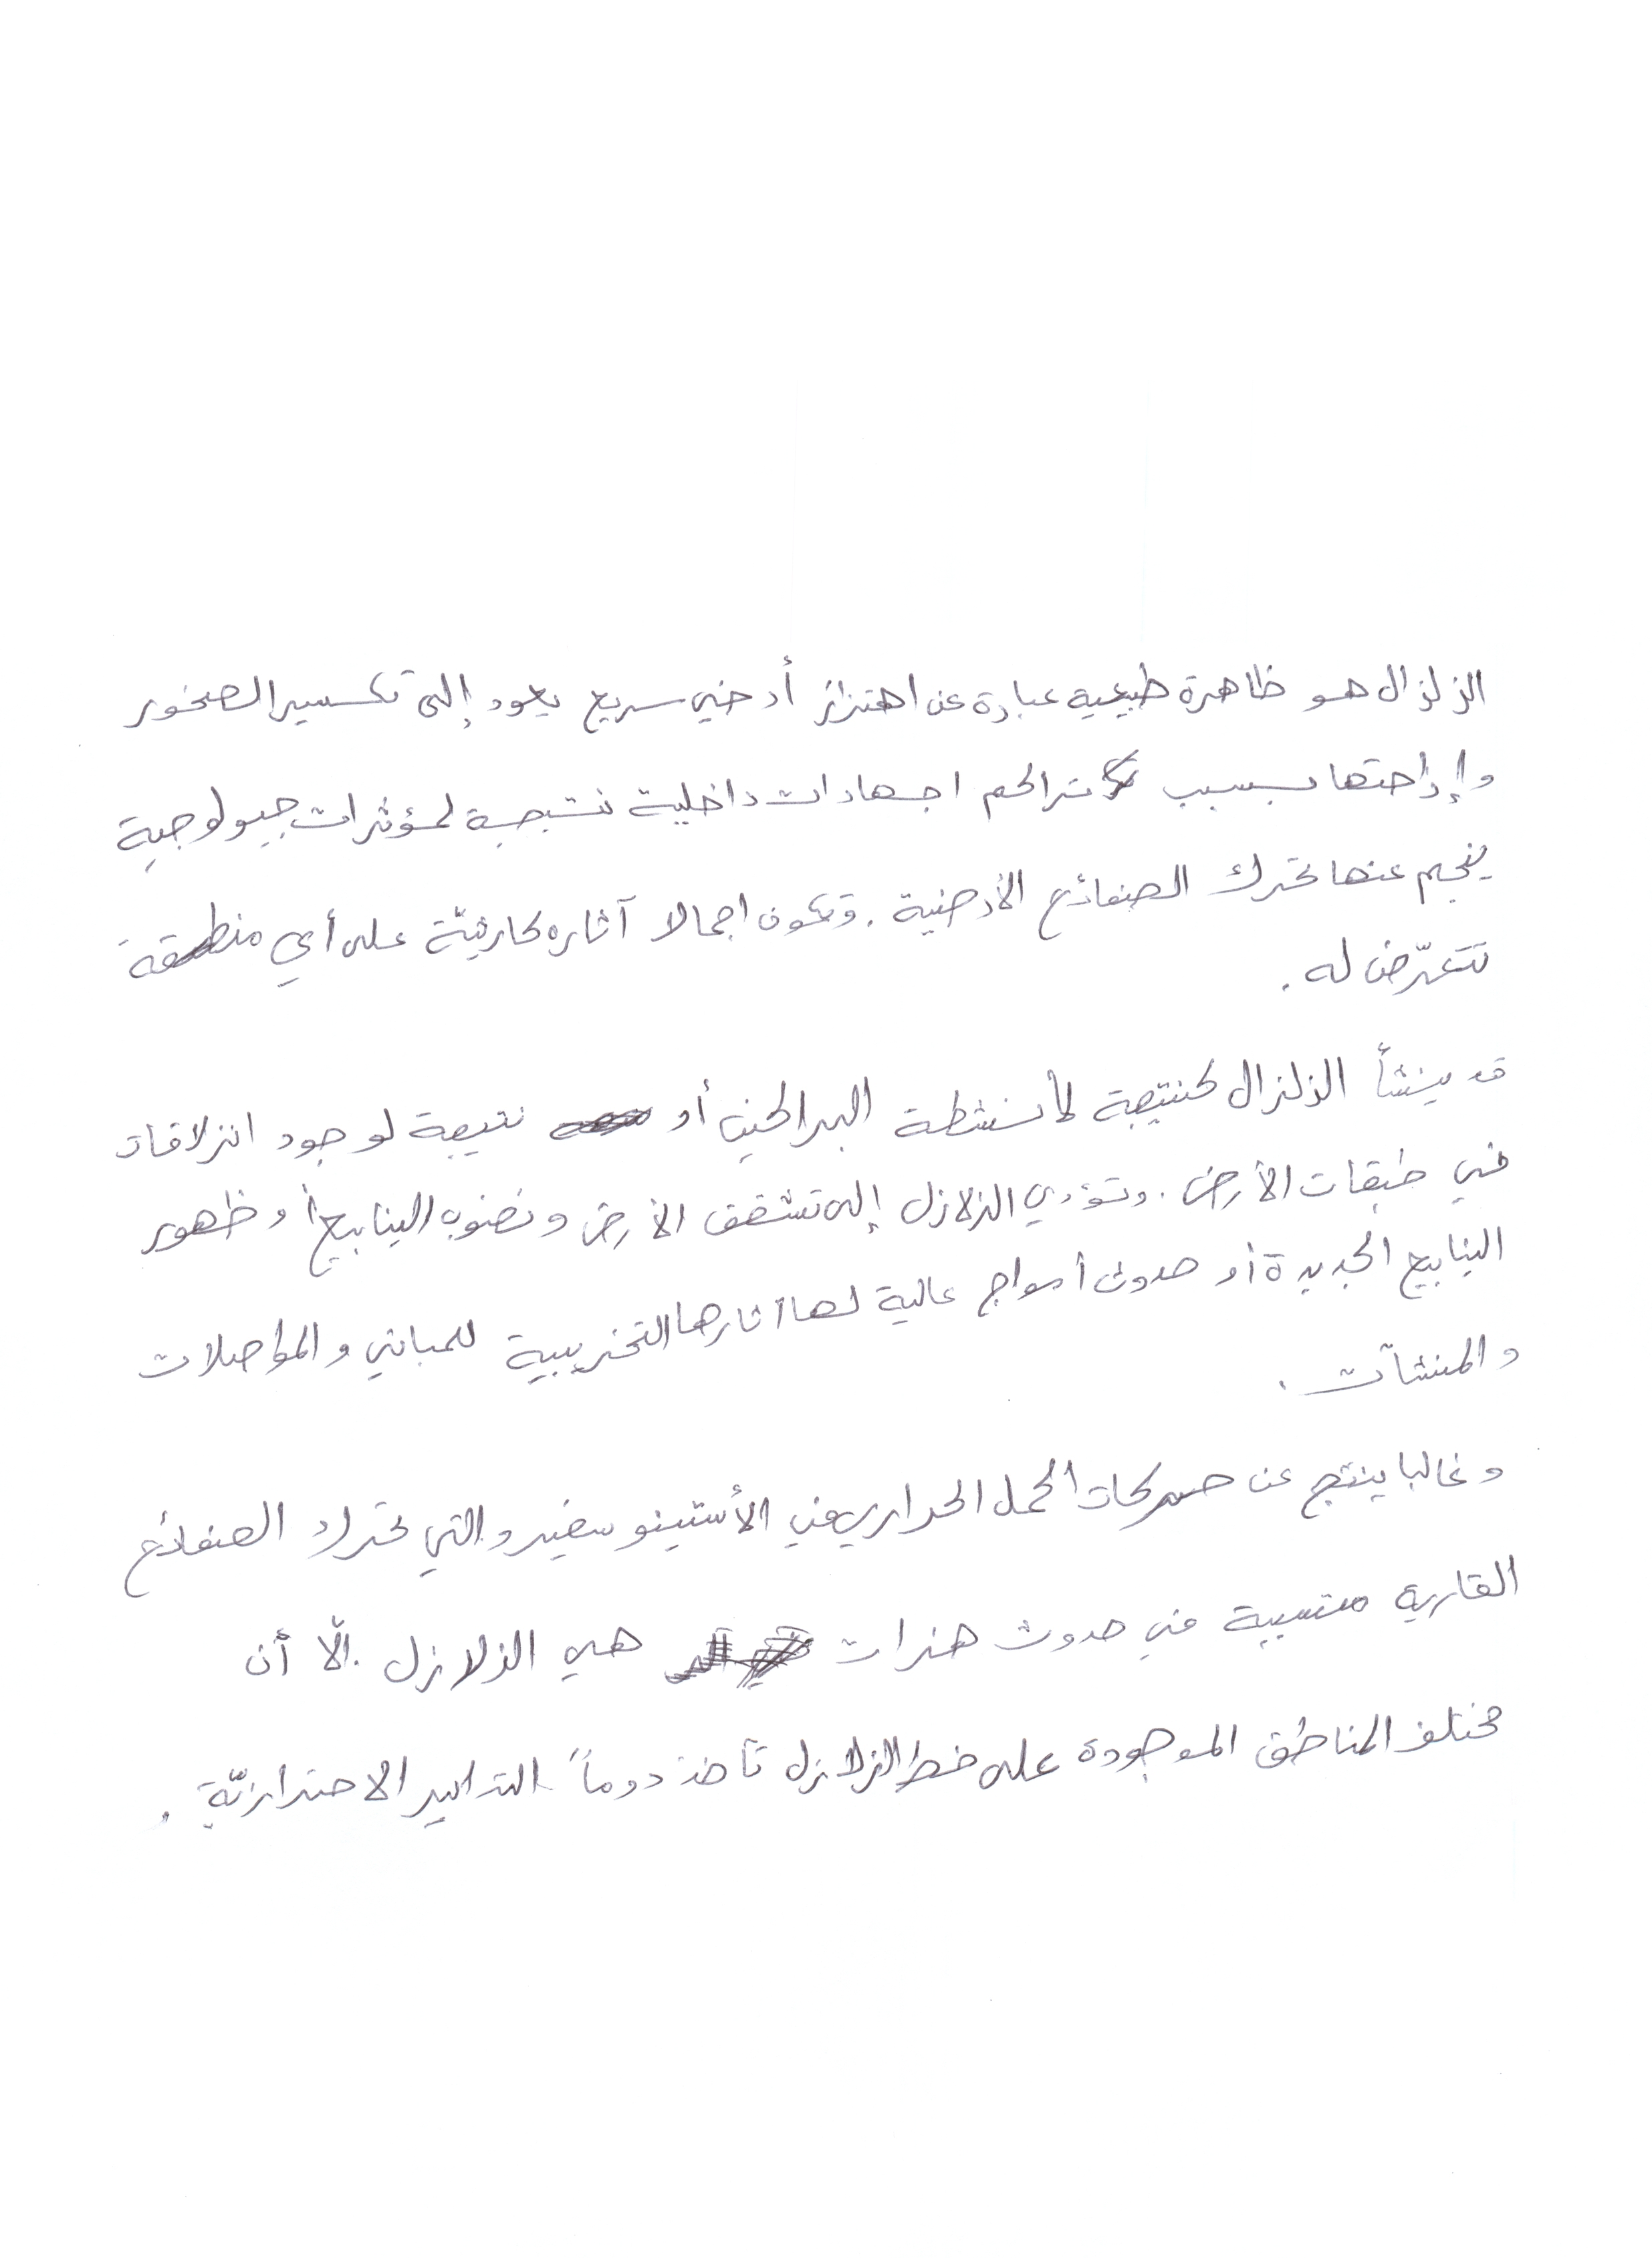 الزلزال هو ظاهرة طبيعية عبارة عن اهتزاز أرضي سريع يعود إلى تكسير الصخور
وإزاحتها بسبب تراكم اجهادات داخلية نتيجة لمؤثرات جيولوجية
ينجم عنها تحرك الصفائح الأرضية. وتكون اجمالا آثاره كارثيّة على أي منطقة
تتعرّض له.
قد ينشأ الزلزال كنتيجة لأنشطة البراكين أو نتيجة لوجود انزلاقات
في طبقات الأرض. وتؤدي الزلازل إلى تشقق الأرض ونضوب الينابيع أو ظهور
الينابيع الجديدة أو حدوث أمواج عالية لها آثارها التخريبية للمباني والمواصلات
والمنشآت.
وغالبا ينتج عن حركات الحمل الحراري في الأستينوسفير والتي تحرك الصفائح
القارية متسببة في حدوث هزات هي الزلازل. إلّا أن
مختلف المناطق الموجودة على خط الزلازل تأخذ دوماً التدابير الاحترازيّة.